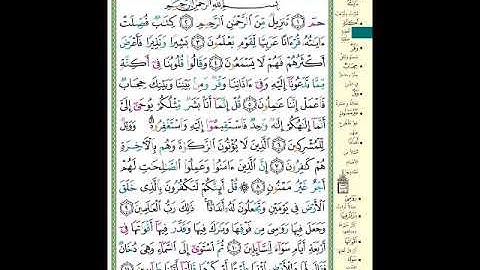 بِسْمِ اللَّهِ الرَّحْمَٰنِ الرَّحِيمِ
حمٓ ١ تَنزِيلٌ مِّنَ ٱلرَّحْمَٰنِ ٱلرَّحِيمِ ٢ كِتَٰبٌ فُصِّلَتْ
ءَايَٰتُهُۥ قُرْءَانًا عَرَبِيًّا لِّقَوْمٍ يَعْلَمُونَ ٣ بَشِيرًا وَنَذِيرًا فَأَعْرَضَ
أَكْثَرُهُمْ فَهُمْ لَا يَسْمَعُونَ ٤ وَقَالُوا۟ قُلُوبُنَا فِىٓ أَكِنَّةٍ
مِّمَّا تَدْعُونَآ إِلَيْهِ وَفِىٓ ءَاذَانِنَا وَقْرٌ وَمِنۢ بَيْنِنَا وَبَيْنِكَ حِجَابٌ
فَٱعْمَلْ إِنَّنَا عَٰمِلُونَ ٥ قُلْ إِنَّمَآ أَنَا۠ بَشَرٌ مِّثْلُكُمْ يُوحَىٰٓ إِلَىَّ
أَنَّمَآ إِلَٰهُكُمْ إِلَٰهٌ وَٰحِدٌ فَٱسْتَقِيمُوٓا۟ إِلَيْهِ وَٱسْتَغْفِرُوهُ وَوَيْلٌ
لِّلْمُشْرِكِينَ ٦ ٱلَّذِينَ لَا يُؤْتُونَ ٱلزَّكَوٰةَ وَهُم بِٱلْءَاخِرَةِ
هُمْ كَٰفِرُونَ ٧ إِنَّ ٱلَّذِينَ ءَامَنُوا۟ وَعَمِلُوا۟ ٱلصَّٰلِحَٰتِ لَهُمْ
أَجْرٌ غَيْرُ مَمْنُونٍ ٨ قُلْ أَئِنَّكُمْ لَتَكْفُرُونَ بِٱلَّذِى خَلَقَ
ٱلْأَرْضَ فِى يَوْمَيْنِ وَتَجْعَلُونَ لَهُۥٓ أَندَادًا ذَٰلِكَ رَبُّ ٱلْعَٰلَمِينَ ٩
وَجَعَلَ فِيهَا رَوَٰسِىَ مِن فَوْقِهَا وَبَٰرَكَ فِيهَا وَقَدَّرَ فِيهَآ أَقْوَٰتَهَا فِىٓ
أَرْبَعَةِ أَيَّامٍ سَوَآءً لِّلسَّآئِلِينَ ١٠ ثُمَّ ٱسْتَوَىٰٓ إِلَى ٱلسَّمَآءِ وَهِىَ دُخَانٌ
فَقَالَ لَهَا وَلِلْأَرْضِ ٱئْتِيَا طَوْعًا أَوْ كَرْهًا قَالَتَآ أَتَيْنَا طَآئِعِينَ ١١